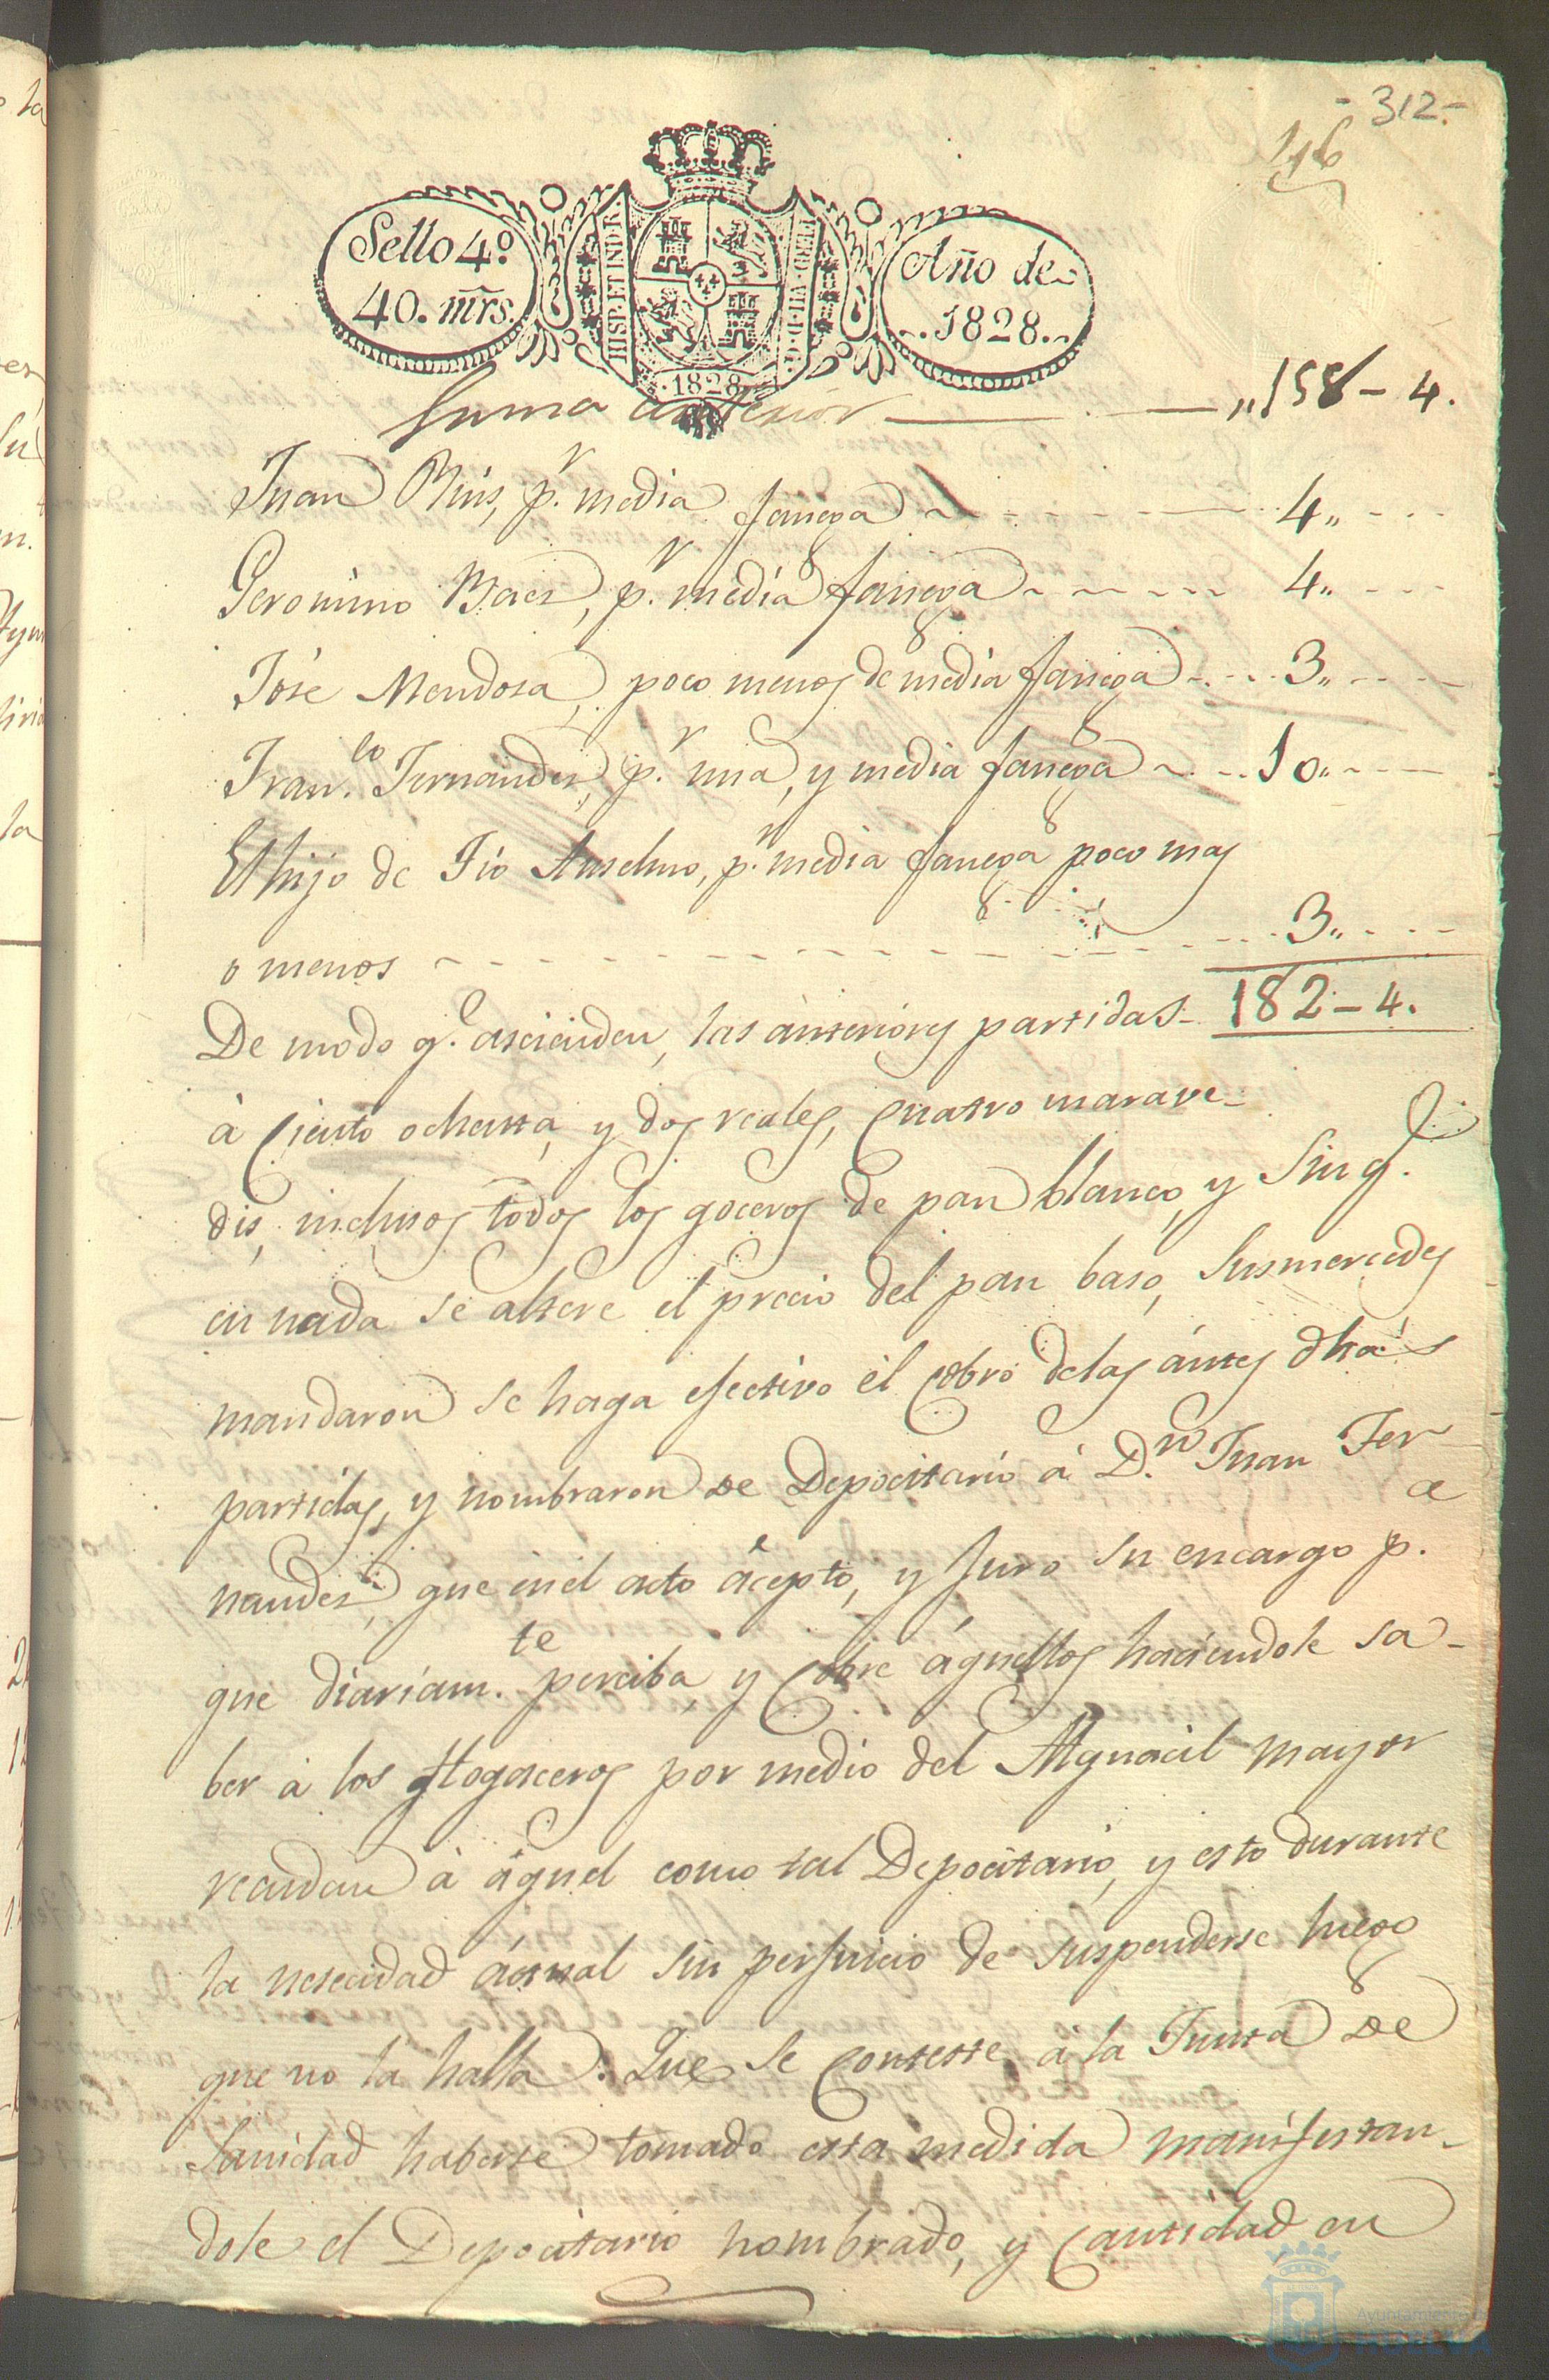 - 312 -
116
Sello 4º
40. mrs.
HISP. ET IND. R.
FERD. VII. D. G.
1828
Año de
1828.
Suma anterior ,,158 - 4.
Juan Ruis, p.r media fanega 4,,
Geronimo Baes, p.r media fanega 4,,
José Mendosa, poco menos de media fanega 3,,
Fran.co Fernandes, p.r una, y media fanega 10,,
El hijo de Tio Anselmo, p.r media fanega poco mas
o menos 3,,
De modo q.e ascienden, las anteriores partidas 182 - 4.
à Ciento ochenta, y dos reales, Cuatro marave-
dis, inclusos todos los goceros de pan blanco, y sin q.e
en nada se altere el precio del pan baso, Susmercedes
mandaron se haga efectivo él Cobro delas ántes dhas
partidas, y nombraron de Depocitario á D.n Juan Fer-
nandes, que enel acto ácepto, y Juro su encargo p.a
que diariam.te perciba, y Cobre águellos haciendole sa-
ber à los Hogaceros por medio del Alguacil mayor
recudan à águel como tal Depocitario, y esto durante
la nesecidad áctual sin perjuicio de suspenderse luego
que no la halla. Que se Conteste à la Junta de
Sanidad haberse tomado esta medida manifestan-
dole el Depocitario nombrado, y Cantidad en
Ayuntamiento de
HUELVA